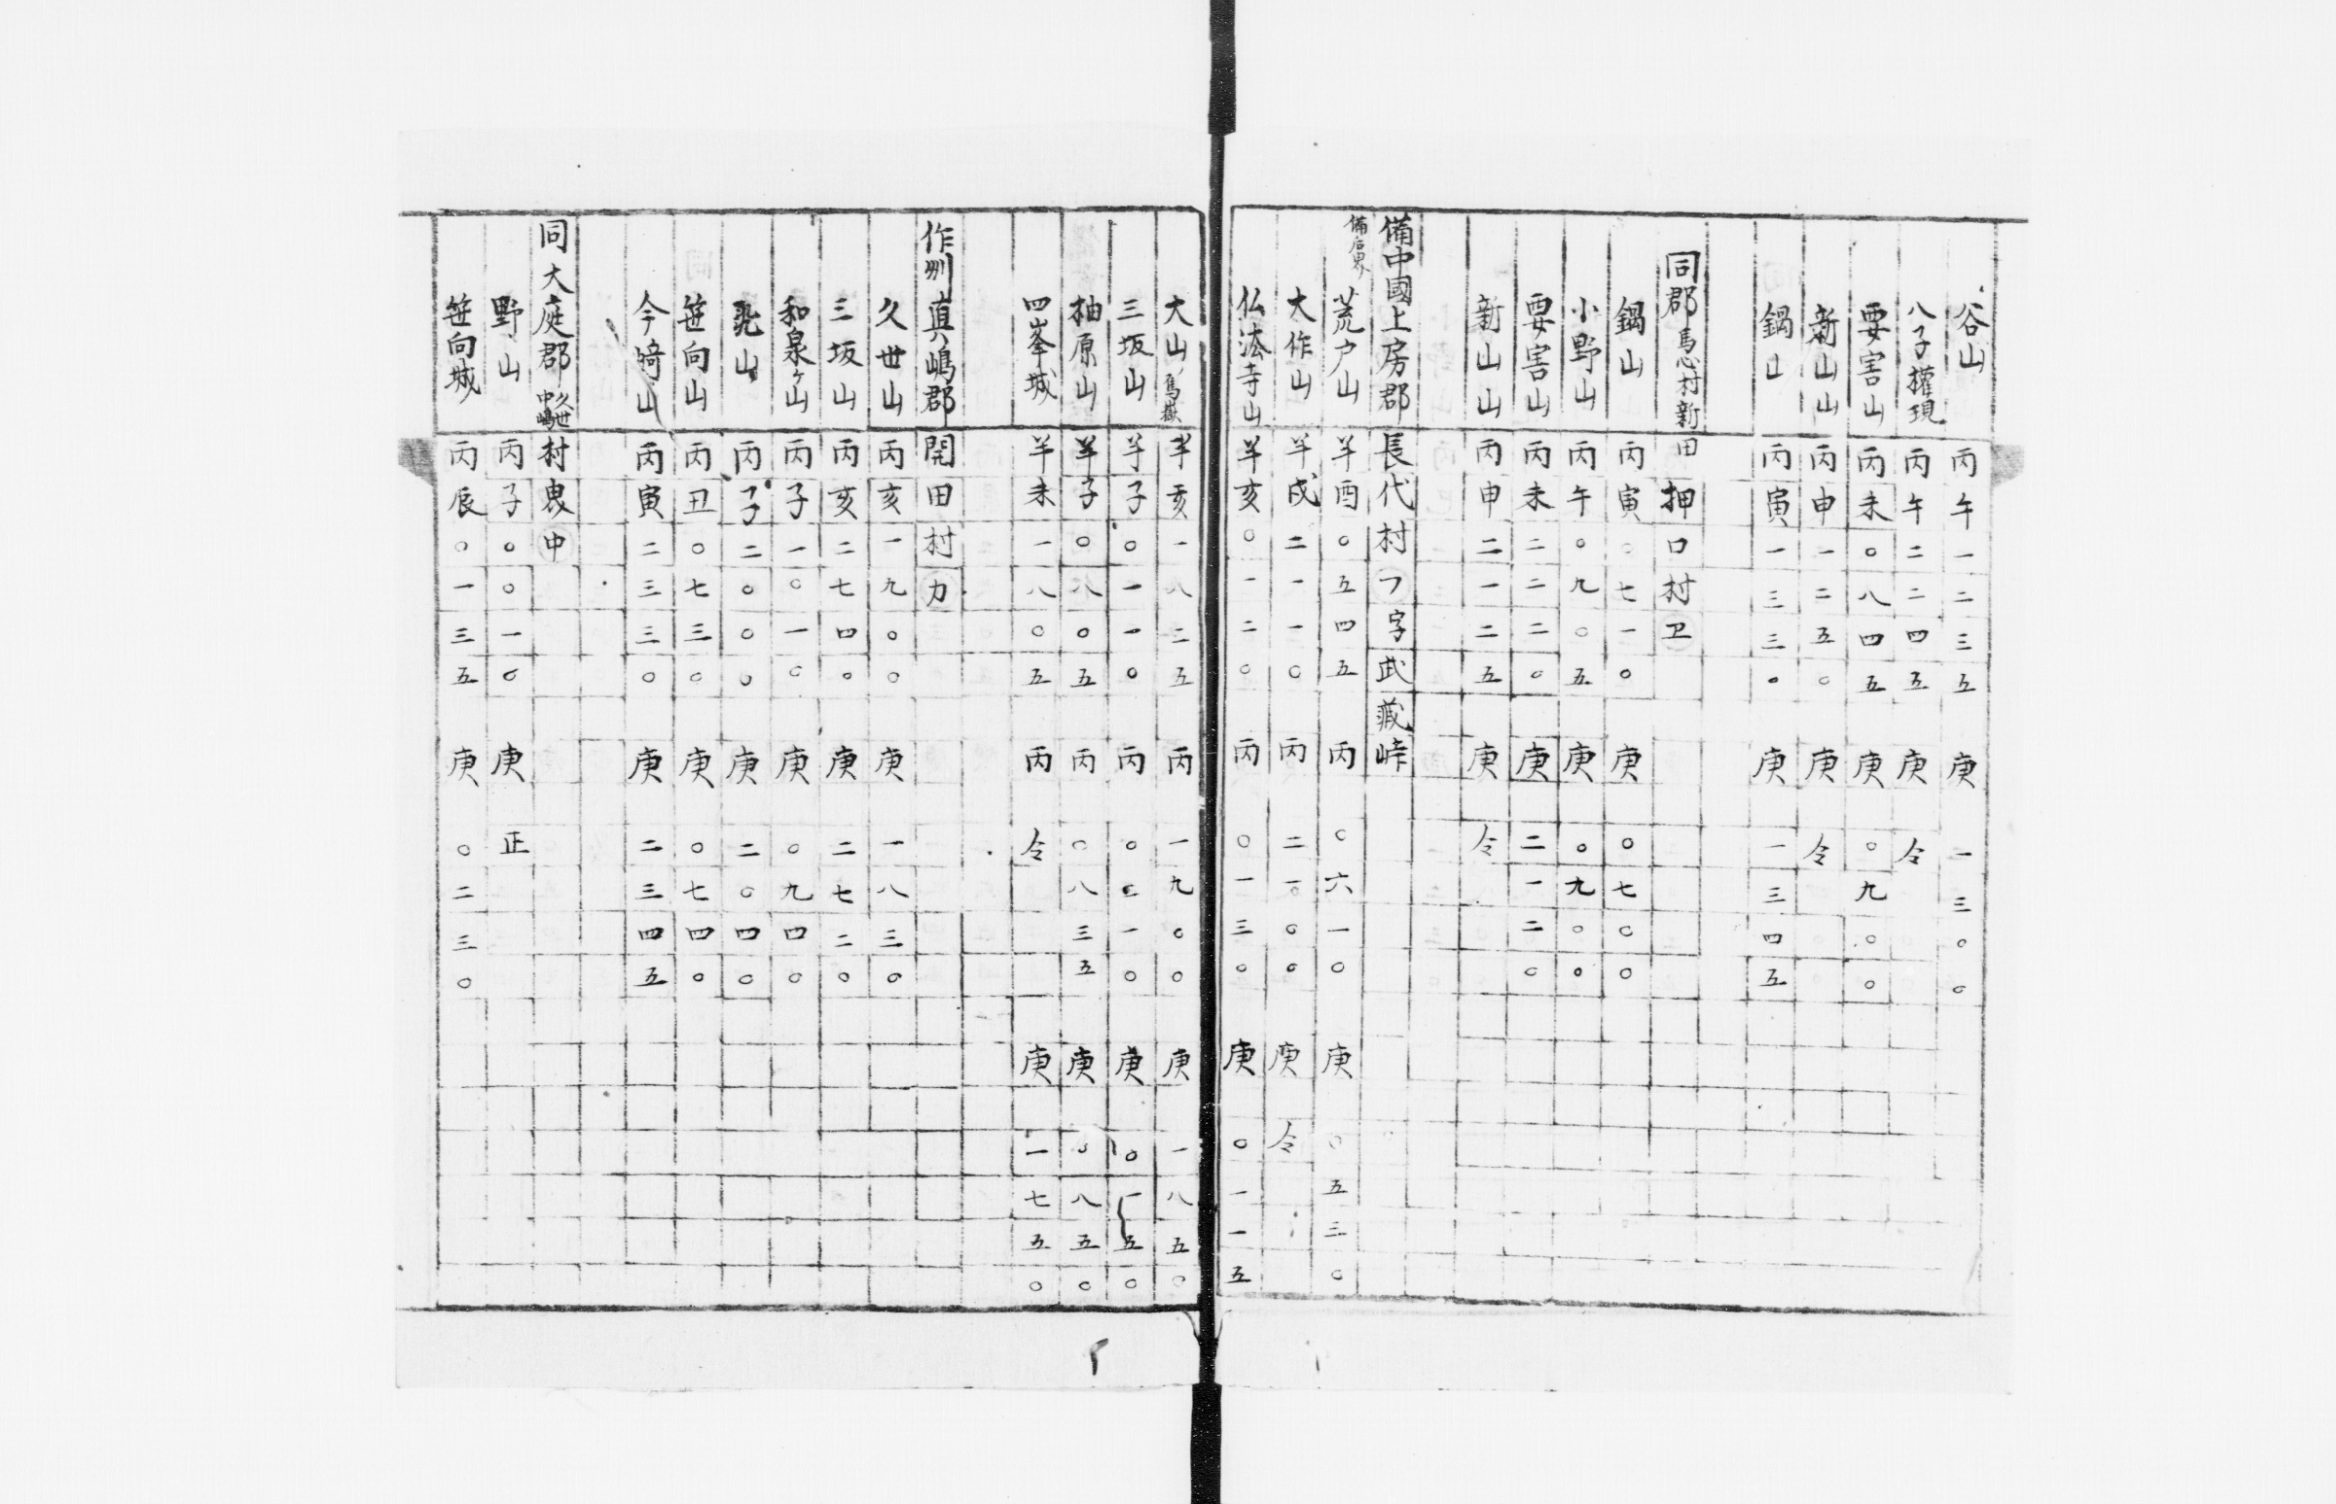 谷山 丙午 一二三五 庚 一三〇〇
八子權現 丙午 二二四五 庚 仝
要害山 丙未 〇八四五 庚 〇九〇〇
新山山 丙申 一二五〇 庚 仝
鍋山 丙寅 一三三〇 庚 一三四五
同郡 馬心村新田 押口村 ヱ
鍋山 丙寅 〇七一〇 庚 〇七〇〇
小野山 丙午 〇九〇五 庚 〇九〇〇
要害山 丙未 二二二〇 庚 二一二〇
新山山 丙申 二一二五 庚 仝
備中國上房郡 長代村 フ 字武蔵峠
荒户山 羊酉 〇五四五 丙 〇六一〇 庚 〇五三〇
大作山 羊戌 二一一〇 丙 二一〇〇 庚 仝
仏法寺山 羊亥 〇一二〇 丙 〇一三〇 庚 〇一一五
大山 羊亥 一八二五 丙 一九〇〇 庚 一八五〇
三坂山 羊子 〇一一〇 丙 〇一〇 庚 〇一五〇
柚原山 羊子 〇八〇五 丙 〇八三五 庚 〇八五〇
四峯城 羊未 一八〇五 丙 仝 庚 一七五〇
作州真嶋郡 開田村 カ
久世山 丙亥 一九〇〇 庚 一八三〇
三坂山 丙亥 二七四〇 庚 二七二〇
和泉ヶ山 丙子 一〇一〇 庚 〇九四〇
山 丙子 二〇〇〇 庚 二〇四〇
笹向山 丙丑 〇七三〇 庚 〇七四〇
今﨑山 丙寅 二三三〇 庚 二三四五
同大庭郡 村 中
野山 丙子 〇〇一〇 庚 正
笹向城 丙辰 〇一三五 庚 〇二三〇